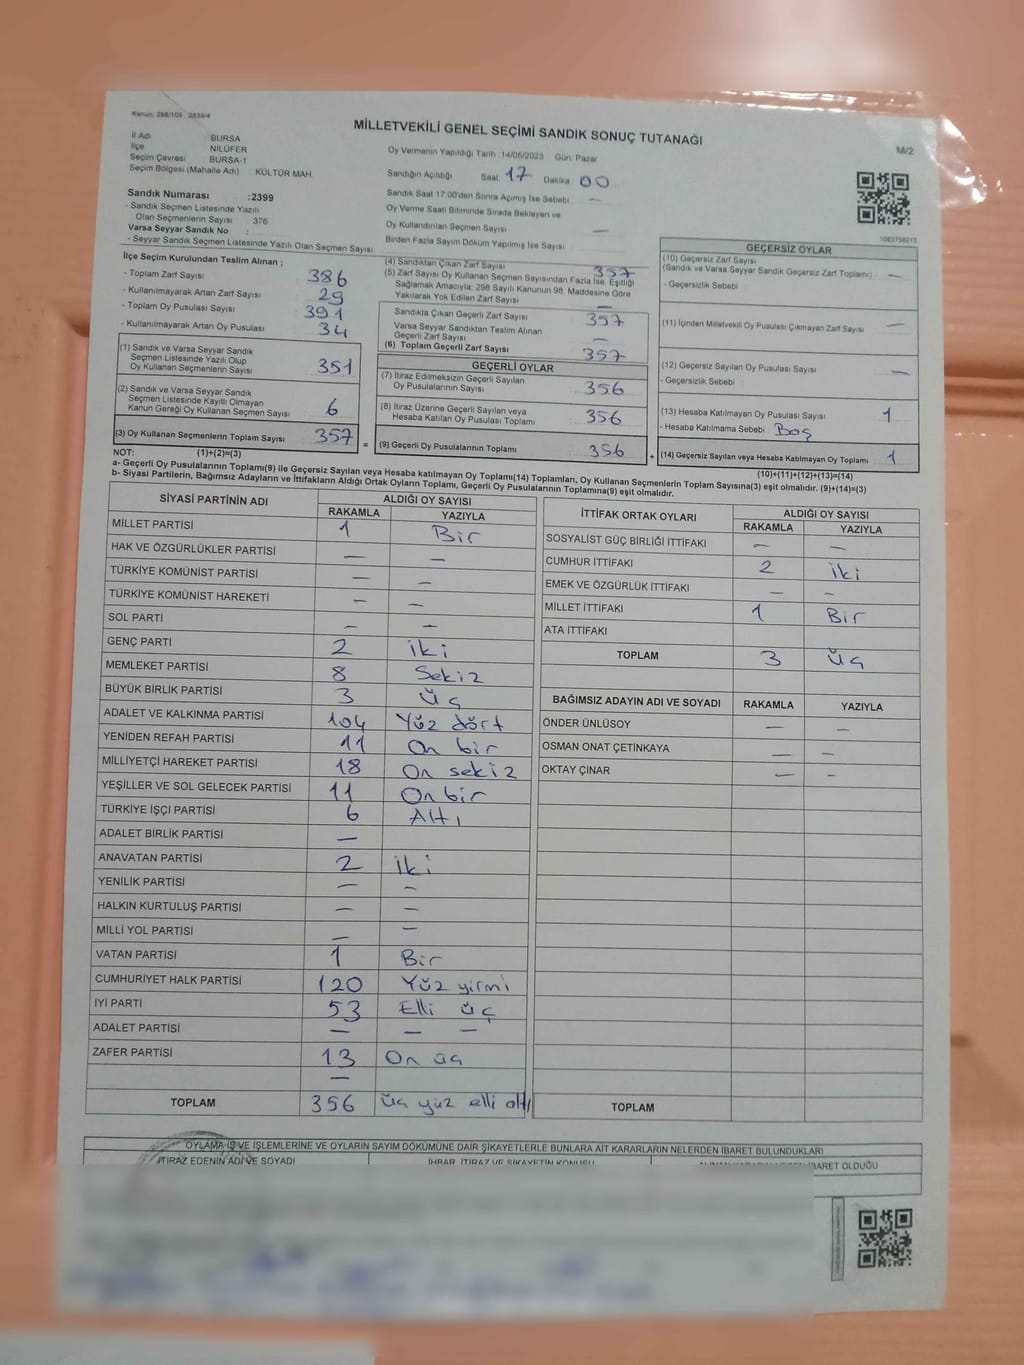 Kanun: 298/105 2839/4
MİLLETVEKİLİ GENEL SEÇİMİ SANDIK SONUÇ TUTANAĞI
M/2
İl Adı : BURSA
İlçe : NİLÜFER
Seçim Çevresi : BURSA-1
Seçim Bölgesi (Mahalle Adı) : KÜLTÜR MAH.
Oy Vermenin Yapıldığı Tarih :14/05/2023 Gün: Pazar
Sandığın Açıldığı Saat: 17 Dakika 00
Sandık Saat 17:00'den Sonra Açılmış İse Sebebi —
Oy Verme Saati Bitiminde Sırada Bekleyen ve
Oy Kullandırılan Seçmen Sayısı —
Birden Fazla Sayım Döküm Yapılmış İse Sayısı
1083758213
Sandık Numarası :2399
- Sandık Seçmen Listesinde Yazılı
Olan Seçmenlerin Sayısı : 376
Varsa Seyyar Sandık No :
- Seyyar Sandık Seçmen Listesinde Yazılı Olan Seçmen Sayısı:
İlçe Seçim Kurulundan Teslim Alınan ;
- Toplam Zarf Sayısı 386
- Kullanılmayarak Artan Zarf Sayısı 29
- Toplam Oy Pusulası Sayısı 391
- Kullanılmayarak Artan Oy Pusulası 34
(1) Sandık ve Varsa Seyyar Sandık
Seçmen Listesinde Yazılı Olup
Oy Kullanan Seçmenlerin Sayısı 351
(2) Sandık ve Varsa Seyyar Sandık
Seçmen Listesinde Kayıtlı Olmayan
Kanun Gereği Oy Kullanan Seçmen Sayısı 6
(3) Oy Kullanan Seçmenlerin Toplam Sayısı 357
(4) Sandıktan Çıkan Zarf Sayısı 357
(5) Zarf Sayısı Oy Kullanan Seçmen Sayısından Fazla İse, Eşitliği
Sağlamak Amacıyla; 298 Sayılı Kanunun 98. Maddesine Göre
Yakılarak Yok Edilen Zarf Sayısı —
Sandıkta Çıkan Geçerli Zarf Sayısı 357
Varsa Seyyar Sandıktan Teslim Alınan
Geçerli Zarf Sayısı —
(6) Toplam Geçerli Zarf Sayısı 357
GEÇERLİ OYLAR
(7) İtiraz Edilmeksizin Geçerli Sayılan
Oy Pusulalarının Sayısı 356
(8) İtiraz Üzerine Geçerli Sayılan veya
Hesaba Katılan Oy Pusulası Toplamı 356
= (9) Geçerli Oy Pusulalarının Toplamı 356
GEÇERSİZ OYLAR
(10) Geçersiz Zarf Sayısı
(Sandık ve Varsa Seyyar Sandık Geçersiz Zarf Toplamı) —
- Geçersizlik Sebebi
(11) İçinden Milletvekili Oy Pusulası Çıkmayan Zarf Sayısı —
(12) Geçersiz Sayılan Oy Pusulası Sayısı —
- Geçersizlik Sebebi
(13) Hesaba Katılmayan Oy Pusulası Sayısı 1
- Hesaba Katılmama Sebebi : Boş
+ (14) Geçersiz Sayılan veya Hesaba Katılmayan Oy Toplamı 1
NOT: (1)+(2)=(3)
(10)+(11)+(12)+(13)=(14)
a- Geçerli Oy Pusulalarının Toplamı(9) ile Geçersiz Sayılan veya Hesaba katılmayan Oy Toplamı(14) Toplamları, Oy Kullanan Seçmenlerin Toplam Sayısına(3) eşit olmalıdır. (9)+(14)=(3)
b- Siyasi Partilerin, Bağımsız Adayların ve İttifakların Aldığı Ortak Oyların Toplamı, Geçerli Oy Pusulalarının Toplamına(9) eşit olmalıdır.
SİYASİ PARTİNİN ADI ALDIĞI OY SAYISI
RAKAMLA YAZIYLA
MİLLET PARTİSİ 1 Bir
HAK VE ÖZGÜRLÜKLER PARTİSİ — —
TÜRKİYE KOMÜNİST PARTİSİ — —
TÜRKİYE KOMÜNİST HAREKETİ — —
SOL PARTİ — —
GENÇ PARTİ 2 iki
MEMLEKET PARTİSİ 8 Sekiz
BÜYÜK BİRLİK PARTİSİ 3 Üç
ADALET VE KALKINMA PARTİSİ 104 Yüz dört
YENİDEN REFAH PARTİSİ 11 On bir
MİLLİYETÇİ HAREKET PARTİSİ 18 On sekiz
YEŞİLLER VE SOL GELECEK PARTİSİ 11 On bir
TÜRKİYE İŞÇİ PARTİSİ 6 Altı
ADALET BİRLİK PARTİSİ —
ANAVATAN PARTİSİ 2 iki
YENİLİK PARTİSİ — —
HALKIN KURTULUŞ PARTİSİ — —
MİLLİ YOL PARTİSİ — —
VATAN PARTİSİ 1 Bir
CUMHURİYET HALK PARTİSİ 120 Yüz yirmi
İYİ PARTİ 53 Elli üç
ADALET PARTİSİ — — —
ZAFER PARTİSİ 13 On üç
—
TOPLAM 356 Üç yüz elli altı
İTTİFAK ORTAK OYLARI ALDIĞI OY SAYISI
RAKAMLA YAZIYLA
SOSYALİST GÜÇ BİRLİĞİ İTTİFAKI — —
CUMHUR İTTİFAKI 2 iki
EMEK VE ÖZGÜRLÜK İTTİFAKI — —
MİLLET İTTİFAKI 1 Bir
ATA İTTİFAKI
TOPLAM 3 Üç
BAĞIMSIZ ADAYIN ADI VE SOYADI RAKAMLA YAZIYLA
ÖNDER ÜNLÜSOY — —
OSMAN ONAT ÇETİNKAYA — —
OKTAY ÇINAR — —
TOPLAM
OYLAMA İŞ VE İŞLEMLERİNE VE OYLARIN SAYIM DÖKÜMÜNE DAİR ŞİKAYETLERLE BUNLARA AİT KARARLARIN NELERDEN İBARET BULUNDUKLARI
İTİRAZ EDENİN ADI VE SOYADI İHBAR, İTİRAZ VE ŞİKAYETİN KONUSU İBARET OLDUĞU